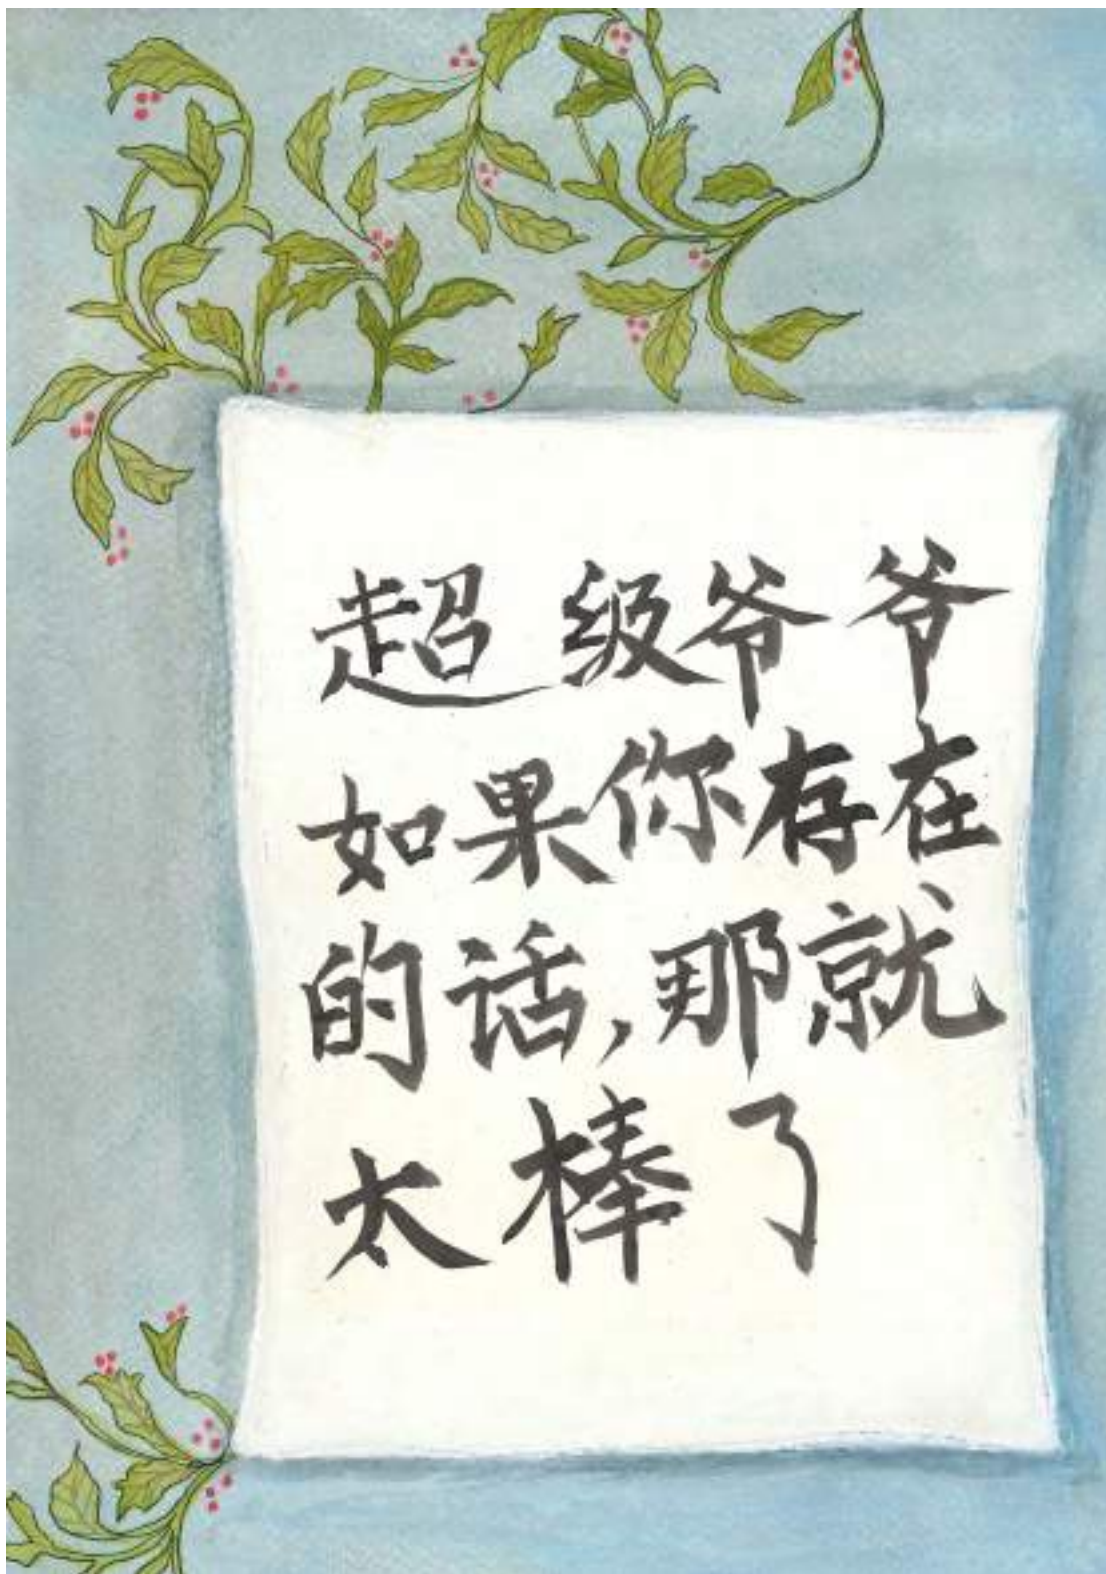 超级爷爷
如果你存在
的话,那就
太棒了